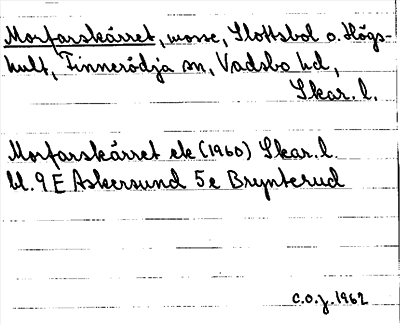 Morfarskärret, mosse, Slottsbol o. Högs-
hult, Finnerödja sn, Vadsbo hd,
Skar. l.
Morfarskärret ek (1960) Skar. l.
bl. 9 E Askersund 5 e Brynterud
C.O.J. 1962